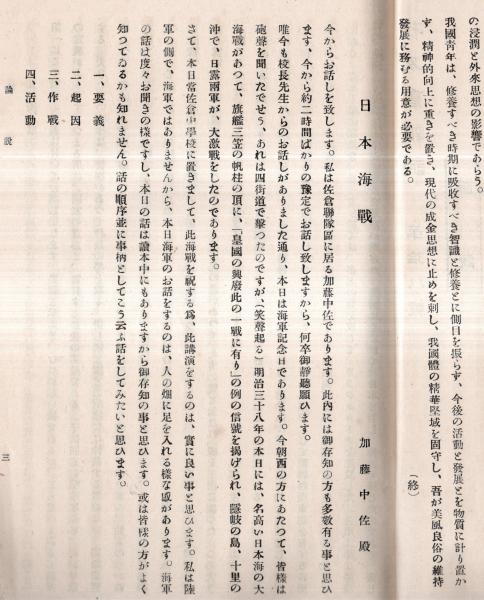 の浸潤と外來思想の影響であらう。
我國靑年は、修養すべき時期に吸收すべき智識と修養とに側目を振らず、今後の活動と發展とを物質に計り置か
ず、精神的向上に重きを置き、現代の成金思想に止めを刺し、我國體の精華堅城を固守し、吾が美風良俗の維持
發展に務むる用意が必要である。
(終)
日本海戰
加藤中佐殿
今からお話しを致します。私は佐倉聯隊區に居る加藤中佐であります。此內には御存知の方も多數有る事と思ひ
ます、今から約二時間ばかりの豫定でお話し致しますから、何卒御靜聽願ひます。
唯今も校長先生からのお話しがありました通り、本日は海軍記念日であります。今朝西の方にあたつて、皆樣は
砲聲を聞いたでせう、あれは四街道で擊つたのですが、(笑聲起る)明治三十八年の本日には、名高い日本海の大
海戰があつて、旗艦三笠の帆柱の頂に、「皇國の興廢此の一戰に有り」の例の信號を揭げられ、隱岐の島、十里の
沖で、日露兩軍が、大激戰をしたのであります。
さて、本日當佐倉中學校に置きまして、此海戰を祝する爲、此講演をするのは、實に良い事と思ひます。私は陸
軍の側で、海軍ではありませんから、本日海軍のお話をするのは、人の畑に足を入れる樣な感があります。海軍
の話は度々お聞きの樣ですし、本日の話は讀本中にもありますから御存知の事と思ひます。或は皆樣の方がよく
知つてゐるかも知れません。話の順序並に事柄としてこう云ふ話をしてみたいと思ひます。
一、要義
二、起因
三、作戰
四、活動
論說
三